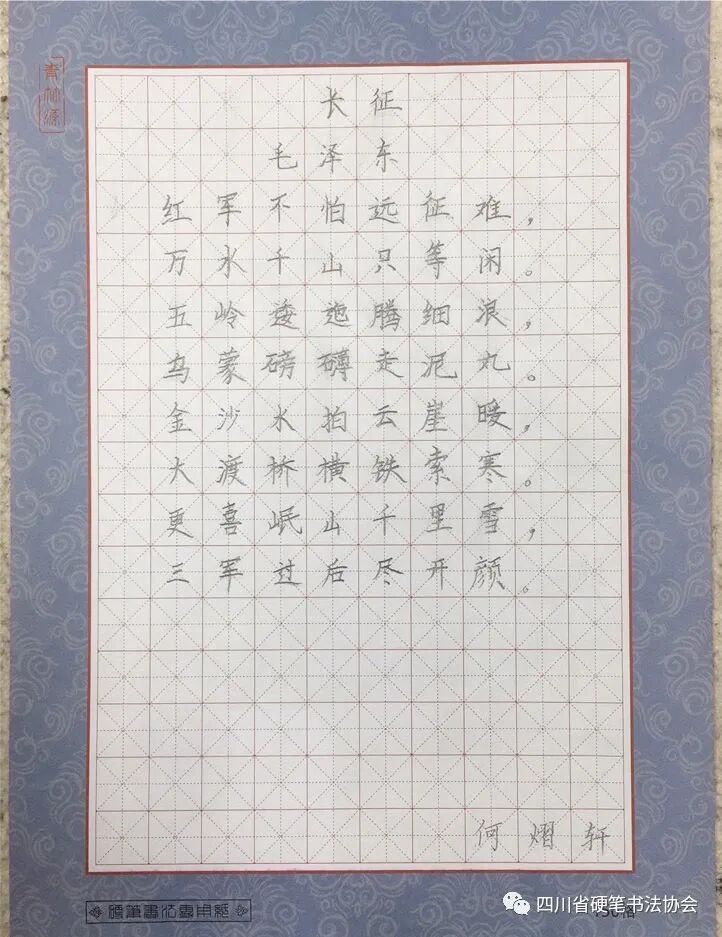 长征
毛泽东
红军不怕远征难，
万水千山只等闲。
五岭逶迤腾细浪，
乌蒙磅礴走泥丸。
金沙水拍云崖暖，
大渡桥横铁索寒。
更喜岷山千里雪，
三军过后尽开颜。
何熠轩
硬笔书法专用纸
四川省硬笔书法协会